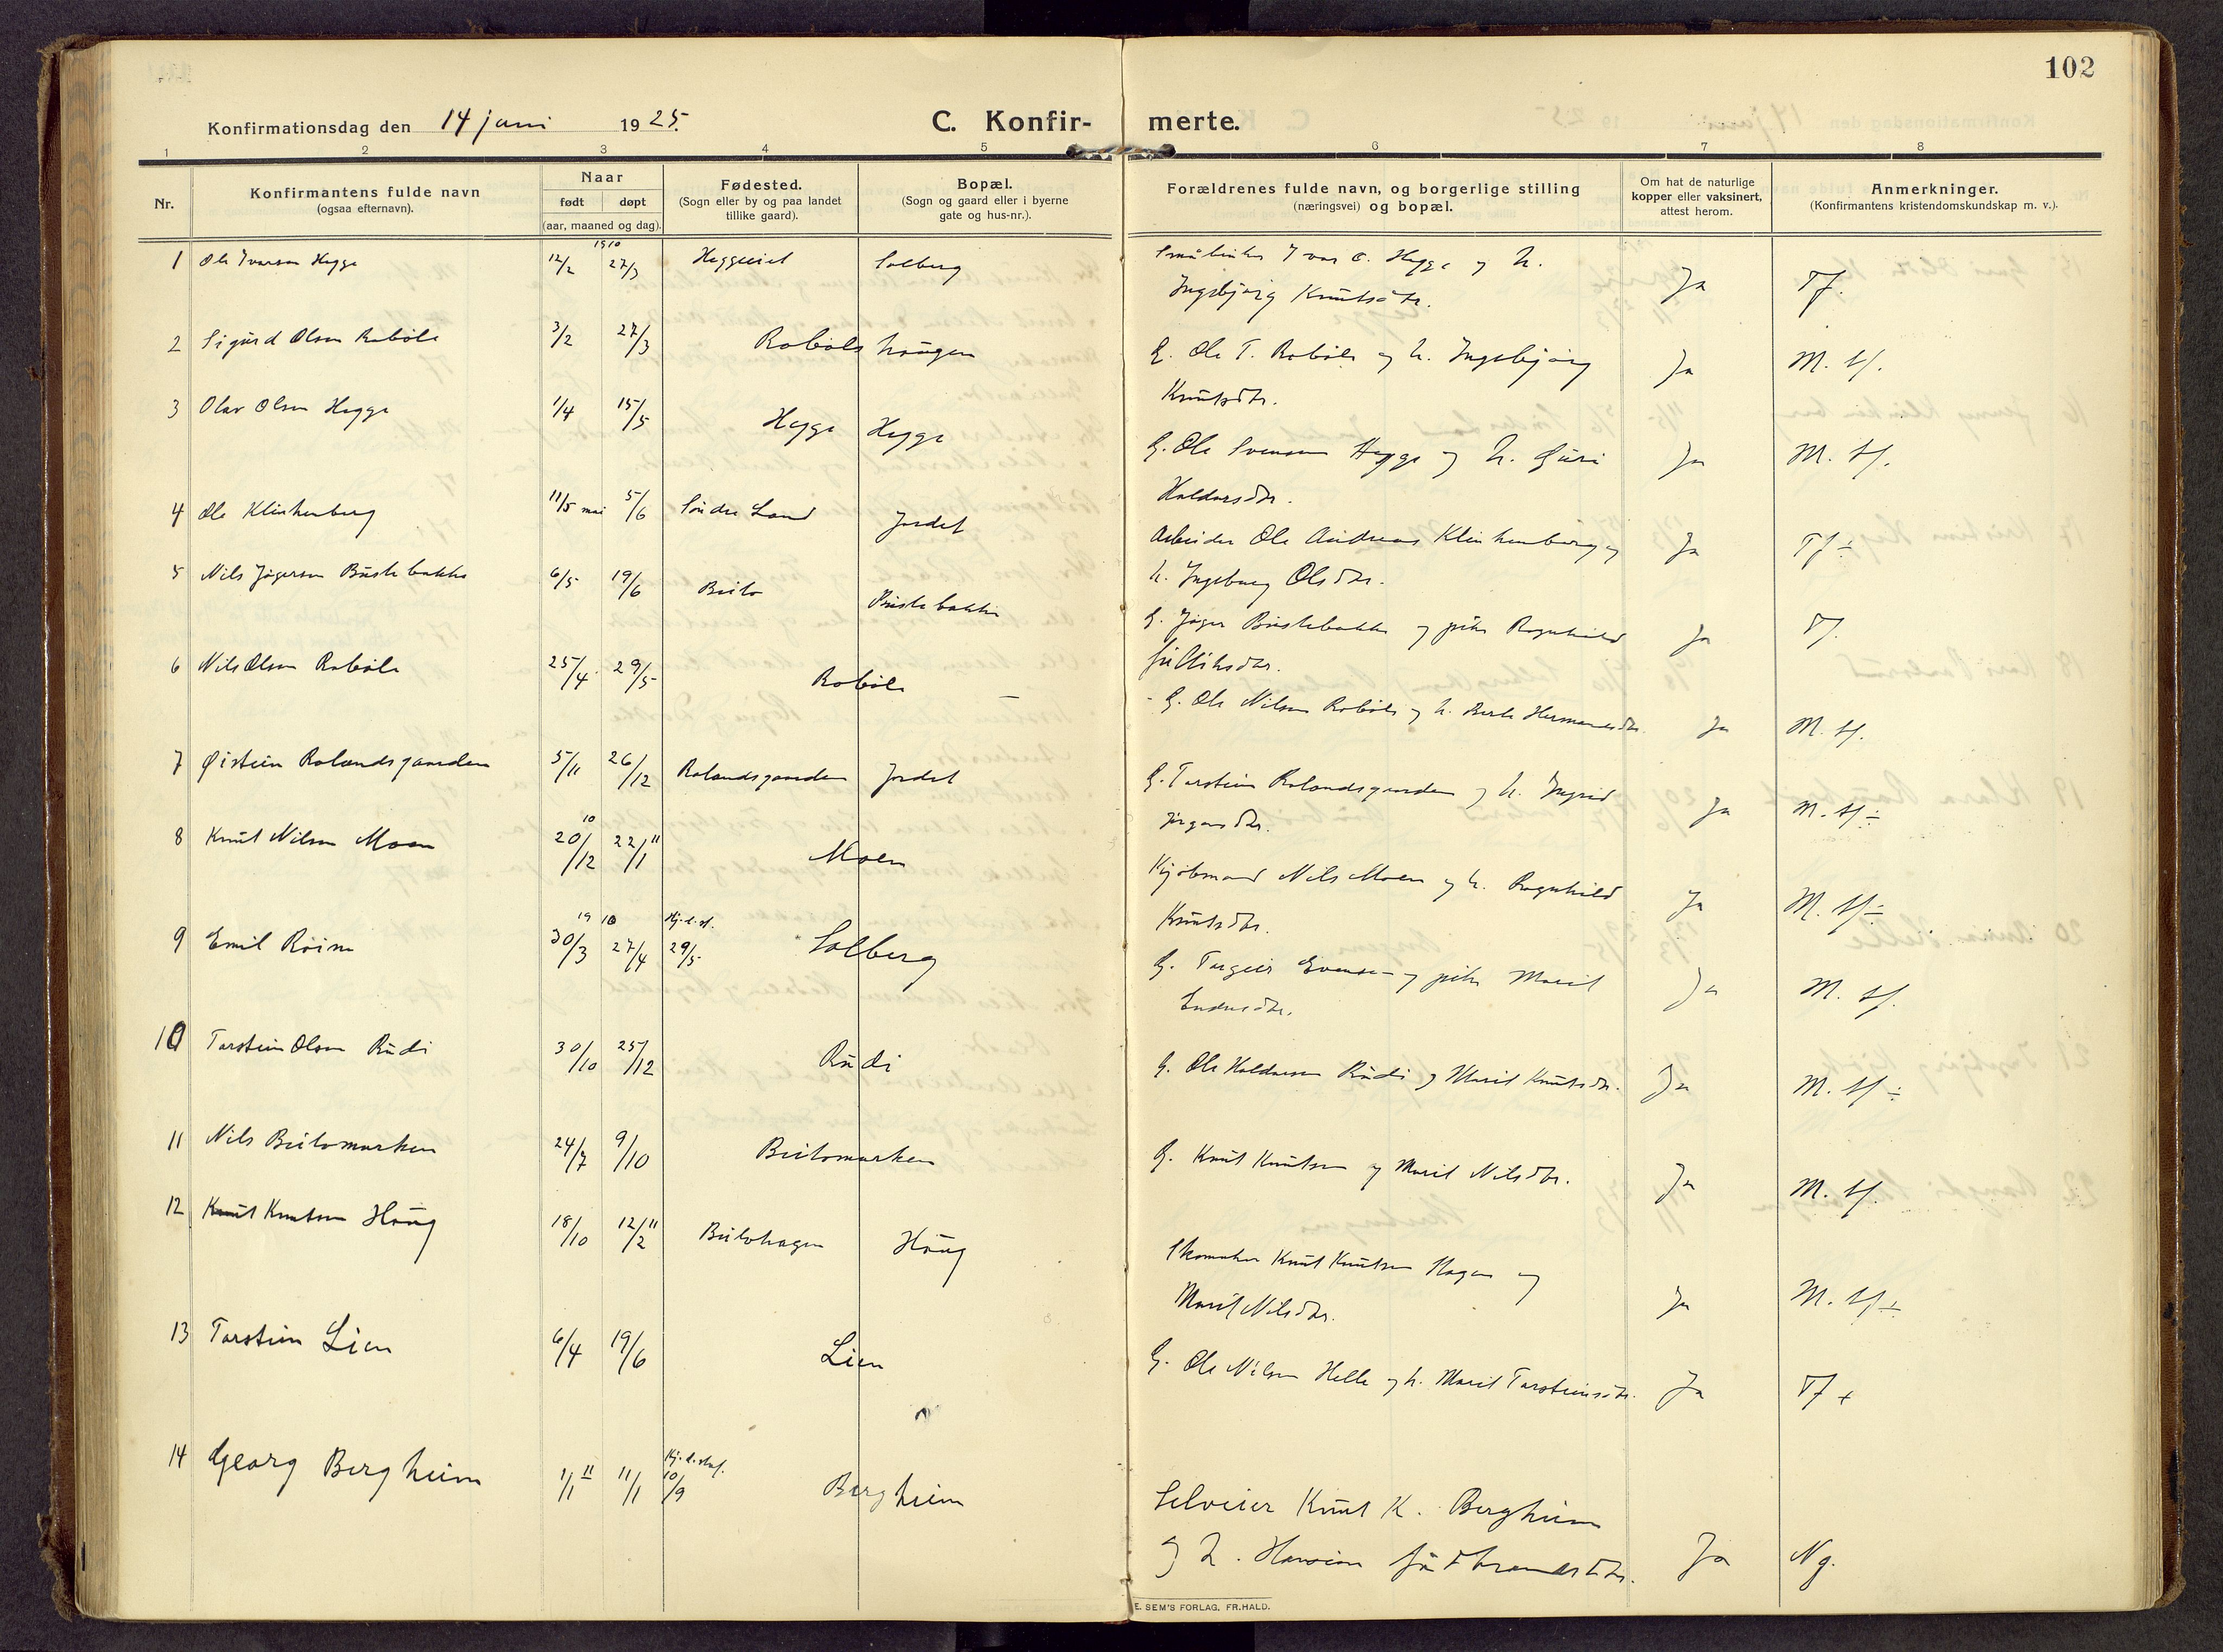 102
Konfirmationsdag den 14 juni 1925.
C. Konfir- merte.
1 2 3 4 5 6 7 8
Nr.
Konfirmantens fulde navn
(ogsaa efternavn).
Naar
født døpt
(aar, maaned og dag).
Fødested.
(Sogn eller by og paa landet
tillike gaard).
Bopæl.
(Sogn og gaard eller i byerne
gate og hus-nr.).
Forældrenes fulde navn, og borgerlige stilling
(næringsvei) og bopæl.
Om hat de naturlige
kopper eller vaksinert,
attest herom.
Anmerkninger.
(Konfirmantens kristendomskundskap m. v.).
1910
1 Ole Ivarsen Hegge 12/2 27/3 Heggeeiet Solberg Ivar O. Hegge og h.
Ingebjørg Knutsdtr. Ja Tf.
2 Sigurd Olsen Robøle 3/2 27/3 Robølshaugen G. Ole T. Robøle og h. Ingebjørg
Knutsdtr. Ja M. tf.
3 Olav Olsen Hegge 1/4 15/5 Hegge Hegge G. Ole Svensen Hegge og h. Guri
Haldorsdtr. Ja M. tf.
4 Ole Klinkenberg 11/5 mai 5/6 Søndre Land Jordet Arbeider Ole Andreas Klinkenberg og
h. Ingeborg Olsdtr. Ja Tf ÷
5 Nils Jøgersen Bustebakke 6/5 19/6 Beito Bustebakke G. Jøger Bustebakke og pike Ragnhild
Gulliksdtr. Ja Tf.
6 Nils Olsen Robøle 25/4 29/5 Robøle – - G. Ole Nilsen Robøle og h. Berte Hermandsdtr. Ja M. tf.
7 Øistein Rolandsgaarden 5/11 26/12 Rolandsgaarden Jordet G. Torstein Rolandsgaarden og h. Ingrid
Jørgensdtr. Ja M. tf ÷
10
8 Knut Nilsen Moen 20/12 22/1 11 Moen Kjøbmand Nils Moen og h. Ragnhild
Knutsdtr. Ja M. tf ÷
19 10 Hj. d. st.
9 Emil Røine 30/3 27/4 29/5 Solberg G. Torgeir Evensen og pike Marit
Endresdtr. Ja M. tf.
10 Torstein Olsen Rudi 30/10 25/12 Rudi G. Ole Haldorsen Rudi og Marit Knutsdtr. Ja M. tf ÷
11 Nils Beitomarken 24/7 9/10 Beitomarken G. Knut Knutsen og Marit Nilsdtr. Ja M. tf.
12 Knut Knutsen Haug 18/10 12/2 11 Beitohagen Haug Skomaker Knut Knutsen Hagen og
Marit Nilsdtr. Ja M. tf ÷
13 Torstein Lien 6/4 19/6 Lien G. Ole Nilsen Helle og h. Marit Torsteinsdtr. Ja Tf +
14 Georg Bergheim 1/1 11 11/1 10/9 Bergheim Selveier Knut K. Bergheim
og h. Gudbrandsdtr. Ja Ng.
E. SEM'S FORLAG, FR.HALD.